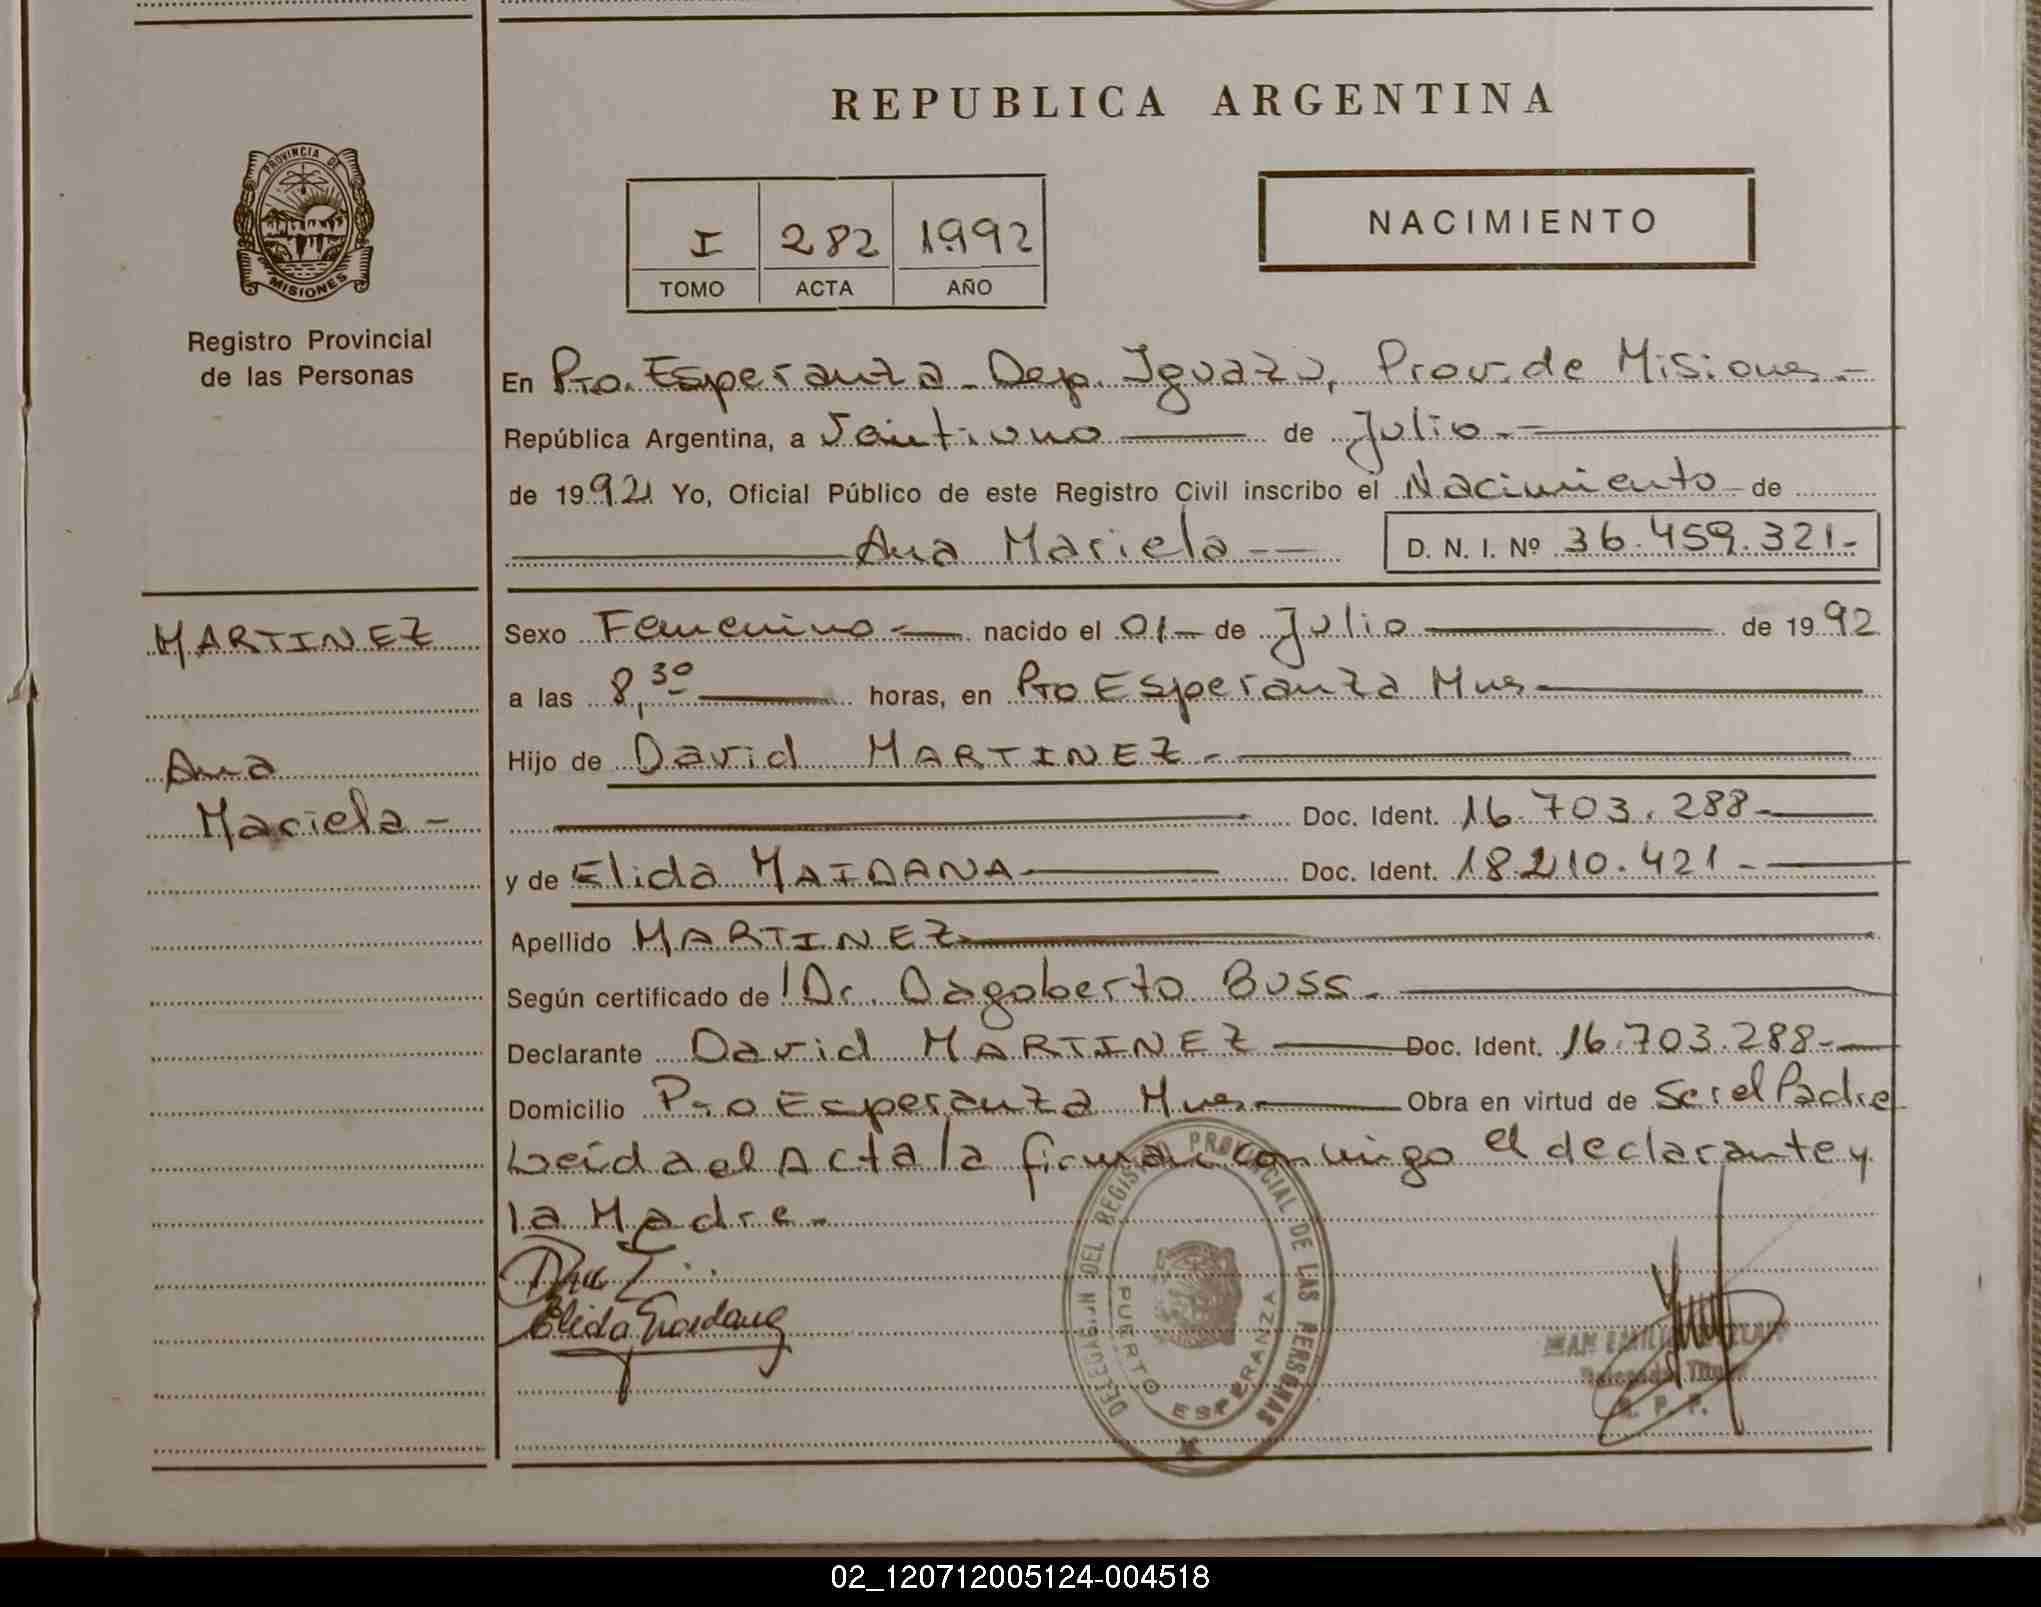 REPUBLICA ARGENTINA
PROVINCIA DE MISIONES
Registro Provincial
de las Personas
I 282 1992
TOMO ACTA AÑO
NACIMIENTO
En Pto. Esperanza - Dep. Iguazú, Prov. de Misiones.-
República Argentina, a Veintiuno de Julio.-
de 1992 Yo, Oficial Público de este Registro Civil inscribo el Nacimiento de
Ana Mariela D. N. I. Nº 36.459.321-
MARTINEZ
Ana
Mariela -
Sexo Femenino nacido el 01 de Julio de 1992
a las 8,30 horas, en Pto Esperanza Mnes
Hijo de David MARTINEZ.-
Doc. Ident. 16.703.288-
y de Elida MAIDANA Doc. Ident. 18.210.421-
Apellido MARTINEZ
Según certificado de Dr. Dagoberto Buss.
Declarante David MARTINEZ Doc. Ident. 16.703.288-
Domicilio Pto Esperanza Mnes Obra en virtud de Ser el Padre
Leida el Acta la firman conmigo el declarante y
la Madre.
Elida Maidana
DEL REGISTRO PROVINCIAL DE LAS PERSONAS
PUERTO ESPERANZA
Delegado Titular
R. P. P.
02_120712005124-004518